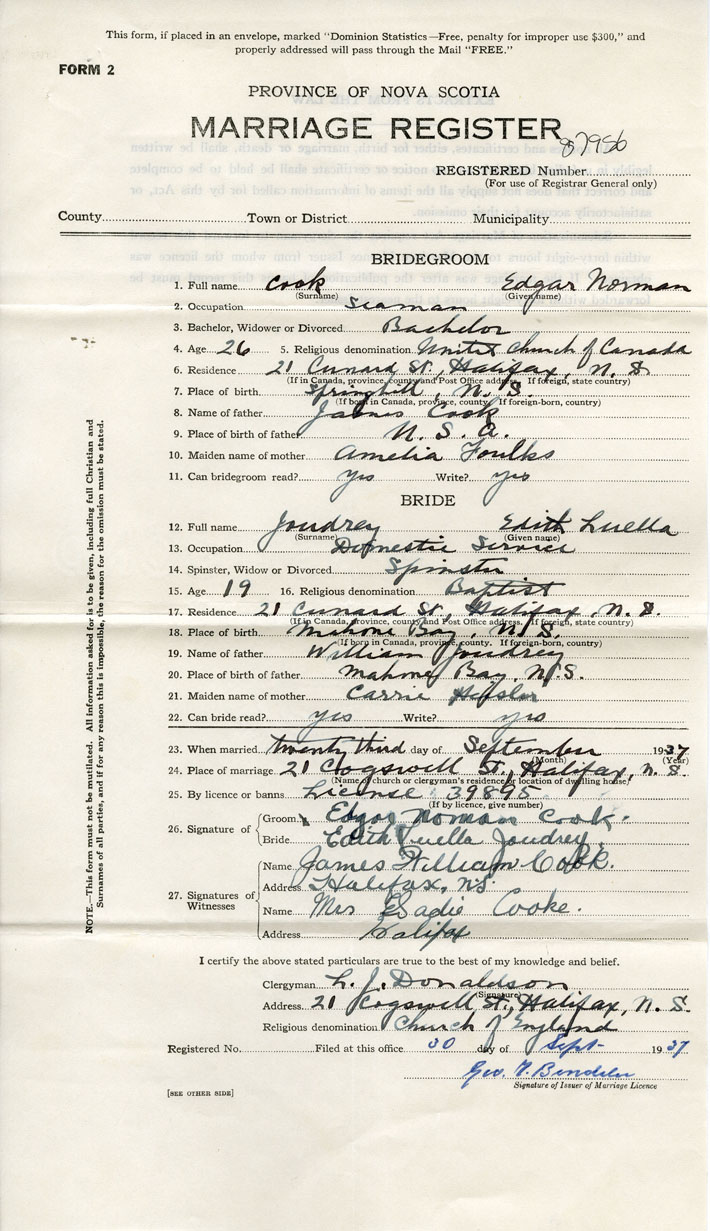 This form, if placed in an envelope, marked "Dominion Statistics—Free, penalty for improper use $300," and
properly addressed will pass through the Mail "FREE."
FORM 2
PROVINCE OF NOVA SCOTIA
MARRIAGE REGISTER
87986
REGISTERED Number
(For use of Registrar General only)
County Town or District Municipality
BRIDEGROOM
1. Full name Cook Edgar Norman
(Surname) (Given name)
2. Occupation Seaman
3. Bachelor, Widower or Divorced Bachelor
4. Age 26 5. Religious denomination United Church of Canada
6. Residence 21 Cunard St, Halifax, N. S.
(If in Canada, province, county and Post Office address. If foreign, state country)
7. Place of birth Springhill, N. S.
(If born in Canada, province, county. If foreign-born, country)
8. Name of father James Cook
9. Place of birth of father
10. Maiden name of mother Amelia Foulks
11. Can bridegroom read? yes Write? yes
BRIDE
12. Full name Joudrey Edith Luella
(Surname) (Given name)
13. Occupation Domestic Service
14. Spinster, Widow or Divorced Spinster
15. Age 19 16. Religious denomination Baptist
17. Residence 21 Cunard St, Halifax, N. S.
(If in Canada, province, county and Post Office address. If foreign, state country)
18. Place of birth Mahone Bay, N. S.
(If born in Canada, province, county. If foreign-born, country)
19. Name of father William Joudrey
20. Place of birth of father Mahone Bay, N. S.
21. Maiden name of mother Carrie
22. Can bride read? yes Write? yes
23. When married twenty third day of September 1937
(Month) (Year)
24. Place of marriage 21 Cogswell St., Halifax, N. S.
(Name of church or clergyman's residence or location of dwelling house)
25. By licence or banns License 39895
(If by licence, give number)
26. Signature of
Groom Edgar Norman Cook.
Bride Edith Luella Joudrey.
27. Signatures of Witnesses
Name James William Cook.
Address Halifax, NS.
Name Mrs Sadie Cooke.
Address Halifax
I certify the above stated particulars are true to the best of my knowledge and belief.
Clergyman L. J. Donaldson
(Signature)
Address 21 Cogswell St., Halifax, N. S.
Religious denomination Church of England
Registered No. Filed at this office 30 day of Sept 1937
Geo.
Signature of Issuer of Marriage Licence
[SEE OTHER SIDE]
NOTE.—This form must not be mutilated. All information asked for is to be given, including full Christian and
Surnames of all parties, and if for any reason this is impossible, the reason for the omission must be stated.